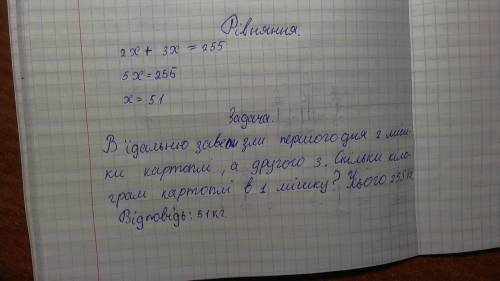 Рівняння.
2x + 3x = 255
5x = 255
x = 51
Задача.
В їдальню завезли першого дня 2 міш-
ки картоплі, а другого 3. Скільки кіло-
грам картоплі в 1 мішку? Усього 255 кг
Відповідь: 51 кг